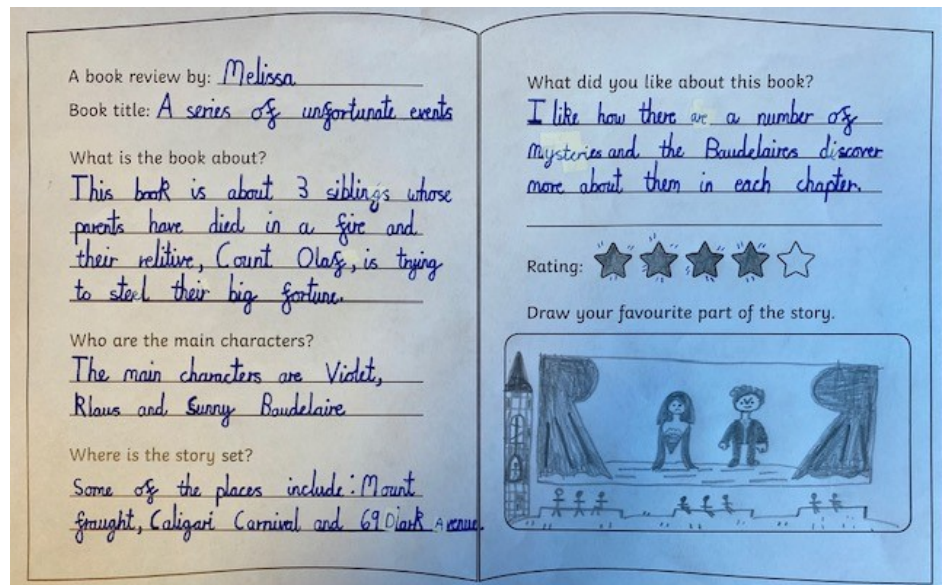 A book review by: Melissa
Book title: A series of unfortunate events
What is the book about?
This book is about 3 siblings whose
parents have died in a fire and
their relitive, Count Olaf, is trying
to steel their big fortune.
Who are the main characters?
The main characters are Violet,
Klaus and Sunny Baudelaire
Where is the story set?
Some of the places include: Mount
fraught, Caligari Carnival and 69 Dark Avenue.
What did you like about this book?
I like how there are a number of
mysteries and the Baudelaires discover
more about them in each chapter.
Rating:
Draw your favourite part of the story.